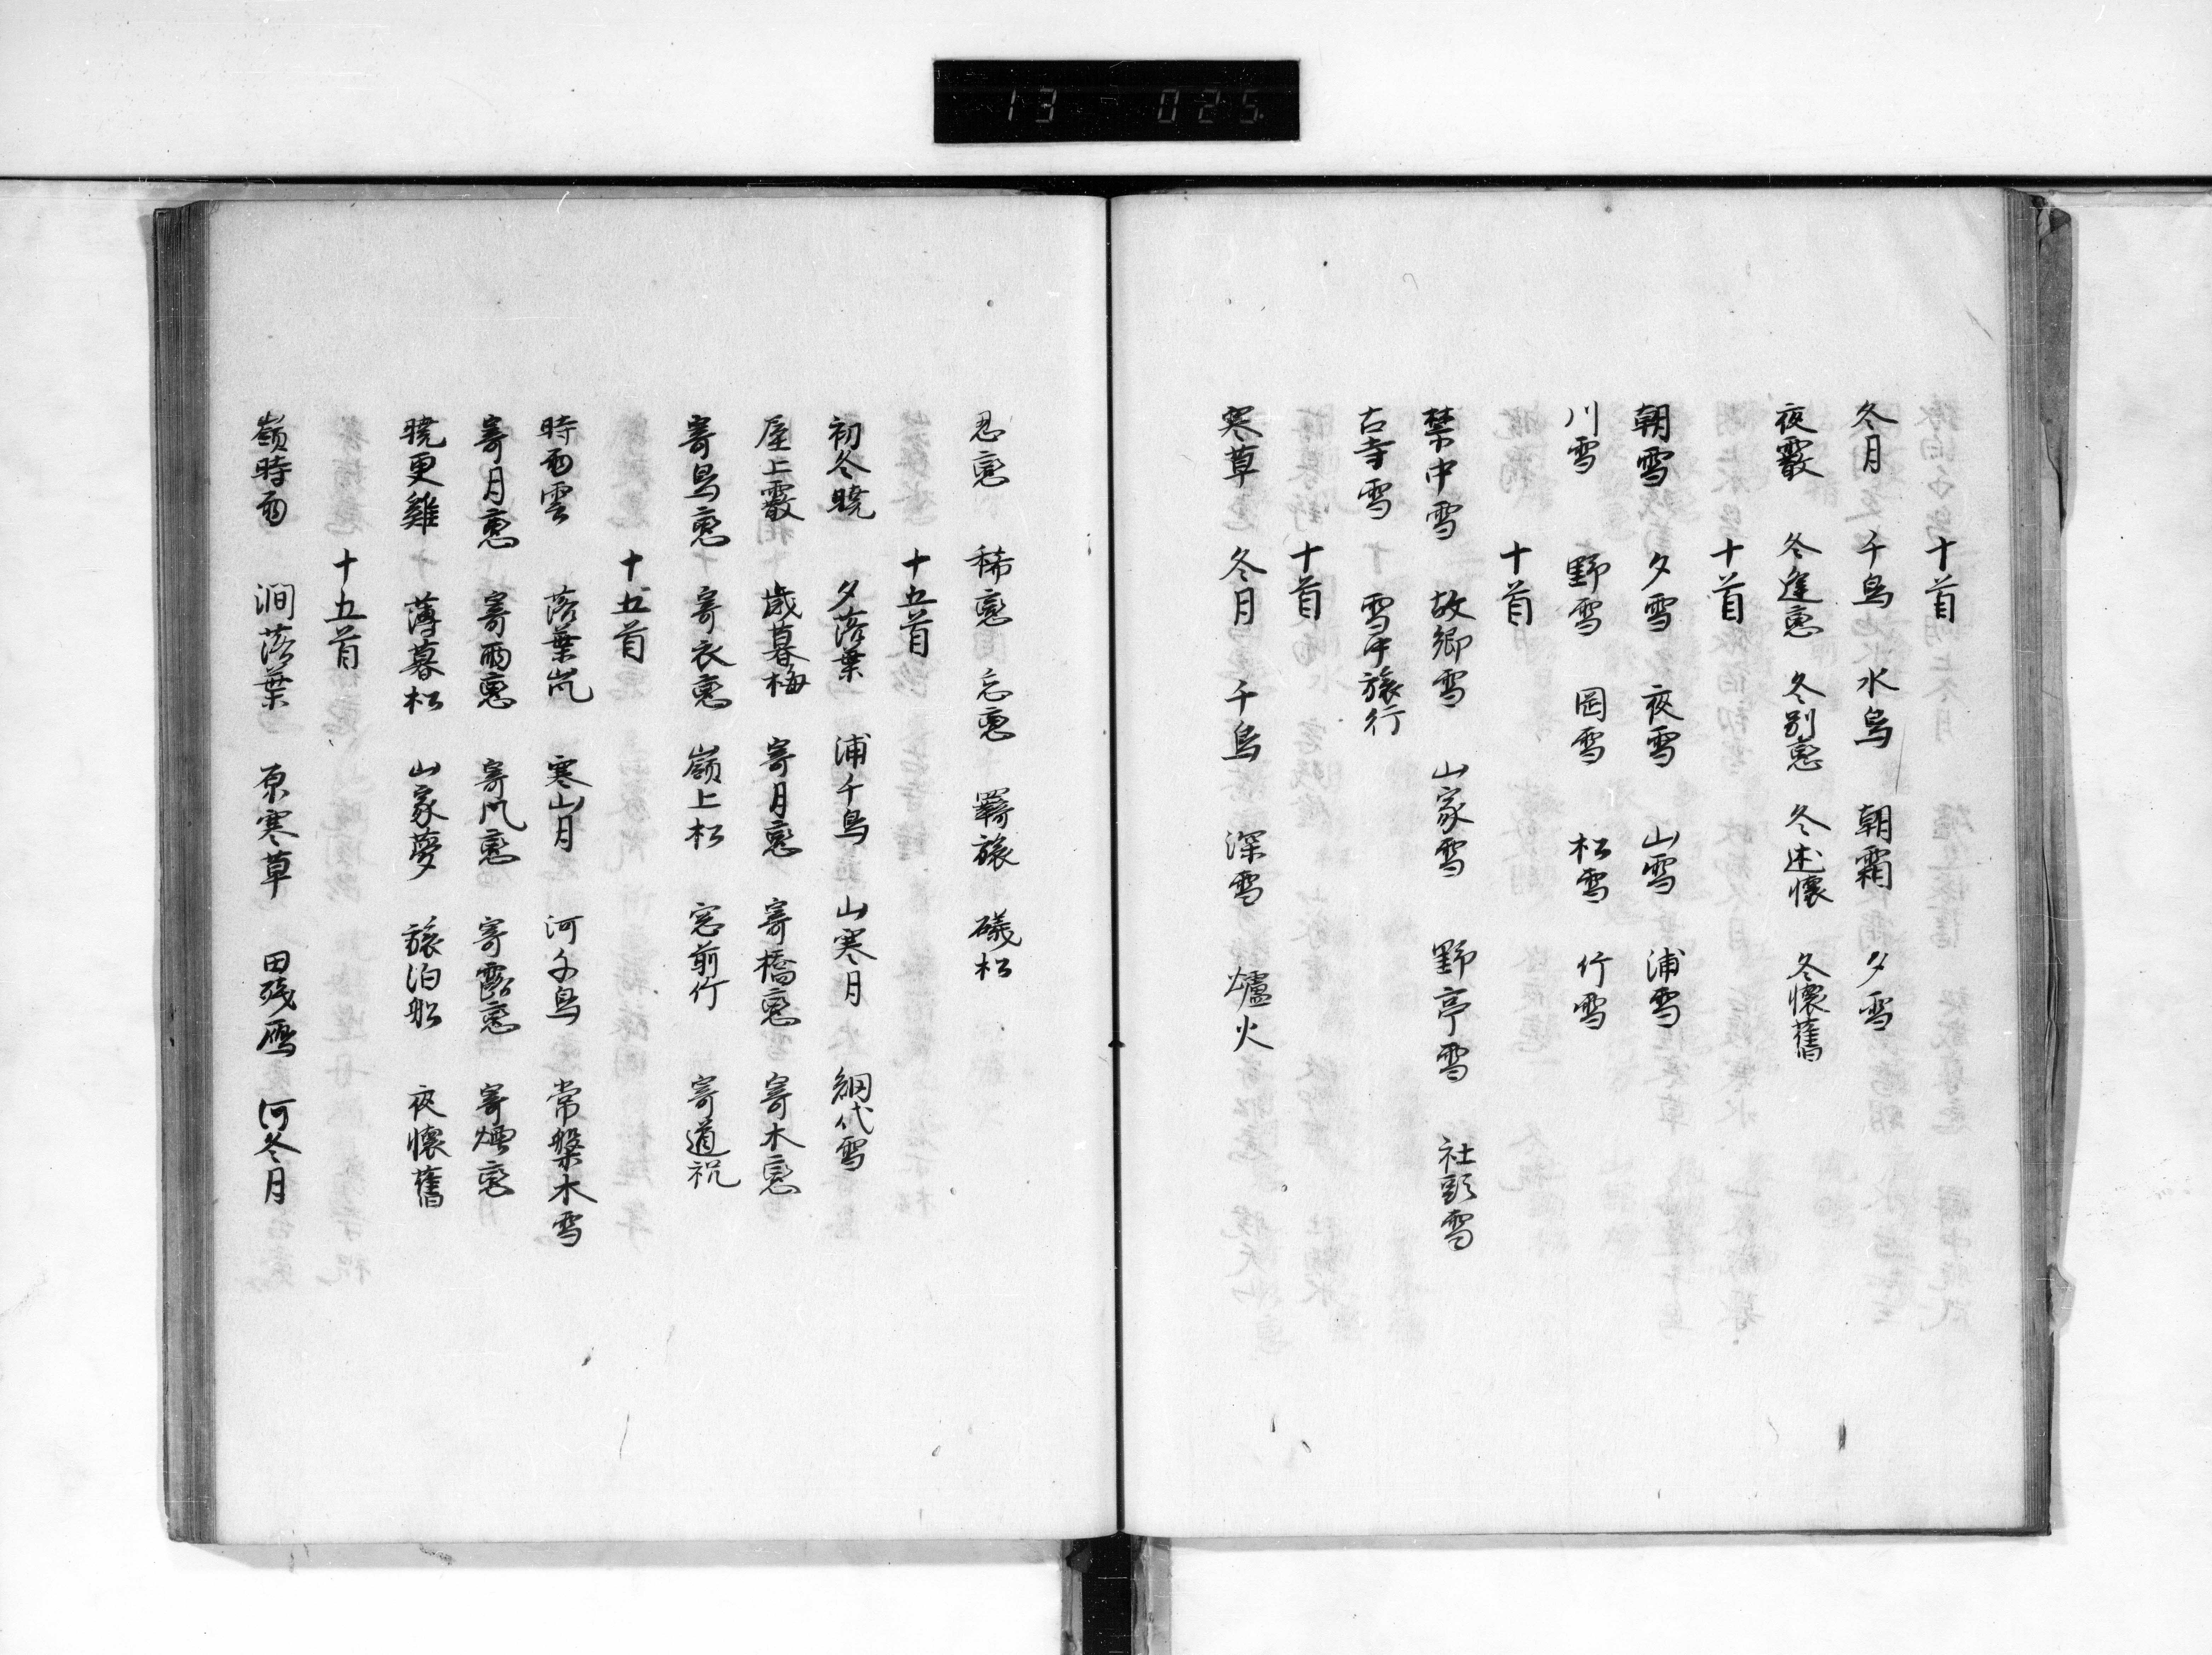 13 025
十首
冬月 千鳥 水鳥 朝霜 夕雪
夜霰 冬逢恋 冬別恋 冬述懐 冬懐舊
十首
朝雪 夕雪 夜雪 山雪 浦雪
川雪 野雪 岡雪 松雪 竹雪
十首
禁中雪 故郷雪 山家雪 野亭雪 社頭雪
古寺雪 雪中旅行
十首
寒草 冬月 千鳥 深雪 爐火
忍恋 稀恋 忘恋 羇旅 礒松
十五首
初冬暁 夕落葉 浦千鳥 山寒月 網代雪
屋上霰 歳暮梅 寄月恋 寄橋恋 寄木恋
寄鳥恋 寄衣恋 嶺上松 窓前竹 寄道祝
十五首
時雨雲 落葉嵐 寒山月 河千鳥 常盤木雪
寄月恋 寄雨恋 寄風恋 寄露恋 寄煙恋
暁更雞 薄暮松 山家夢 旅泊船 夜懐舊
十五首
嶺時雨 澗落葉 原寒草 田残鴈 河冬月